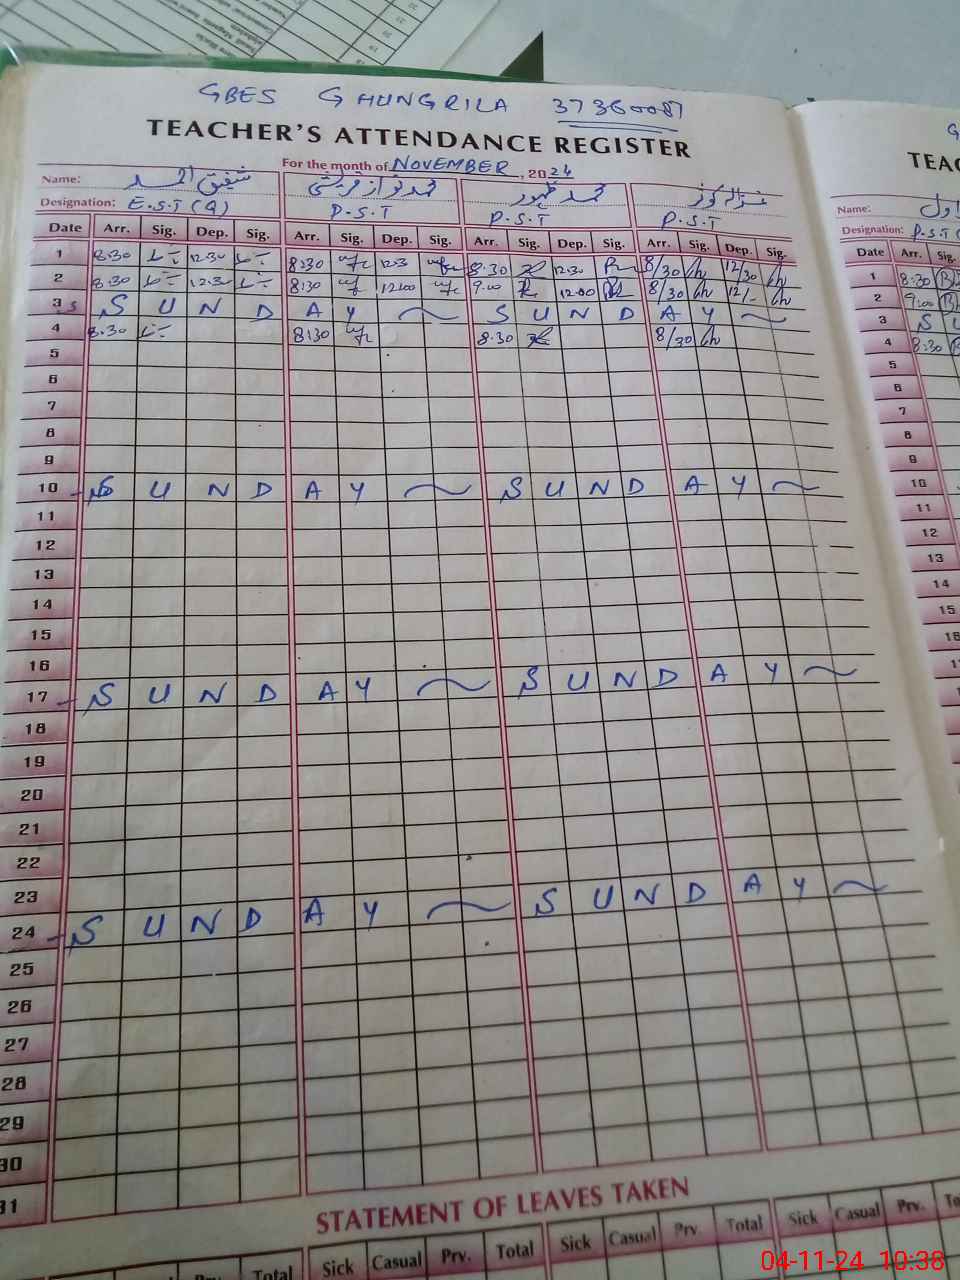 GBES GHUNGRILA 37360087
TEACHER'S ATTENDANCE REGISTER
For the month of NOVEMBER, 2024
Name: شفیق احمد محمد نواز قریشی محمد ظہور
Designation: E.S.T (G) P.S.T P.S.T P.S.T
Date Arr. Sig. Dep. Sig. Arr. Sig. Dep. Sig. Arr. Sig. Dep. Sig. Arr. Sig. Dep. Sig.
1 8:30 12:30 8:30 12:3 8:30 12:30 8/30 12/30
2 8:30 12:30 8:30 12:00 9:00 12:00 8/30 12/-
3 S U N D A Y S U N D A Y
4 8:30 8:30 8:30 8/30
5
6
7
8
9
10 S U N D A Y S U N D A Y
11
12
13
14
15
16
17 S U N D A Y S U N D A Y
18
19
20
21
22
23
24 S U N D A Y S U N D A Y
25
26
27
28
29
30
31
STATEMENT OF LEAVES TAKEN
Prv. Total Sick Casual Prv. Total Sick Casual Prv. Total Sick Casual Prv. To
TEAC
Name: اول
Designation: P.S.T
Date Arr. Sig.
1 8:30
2 9:00
3 S U
4 8:30
5
6
7
8
9
10
11
12
13
14
15
16
04-11-24 10:38